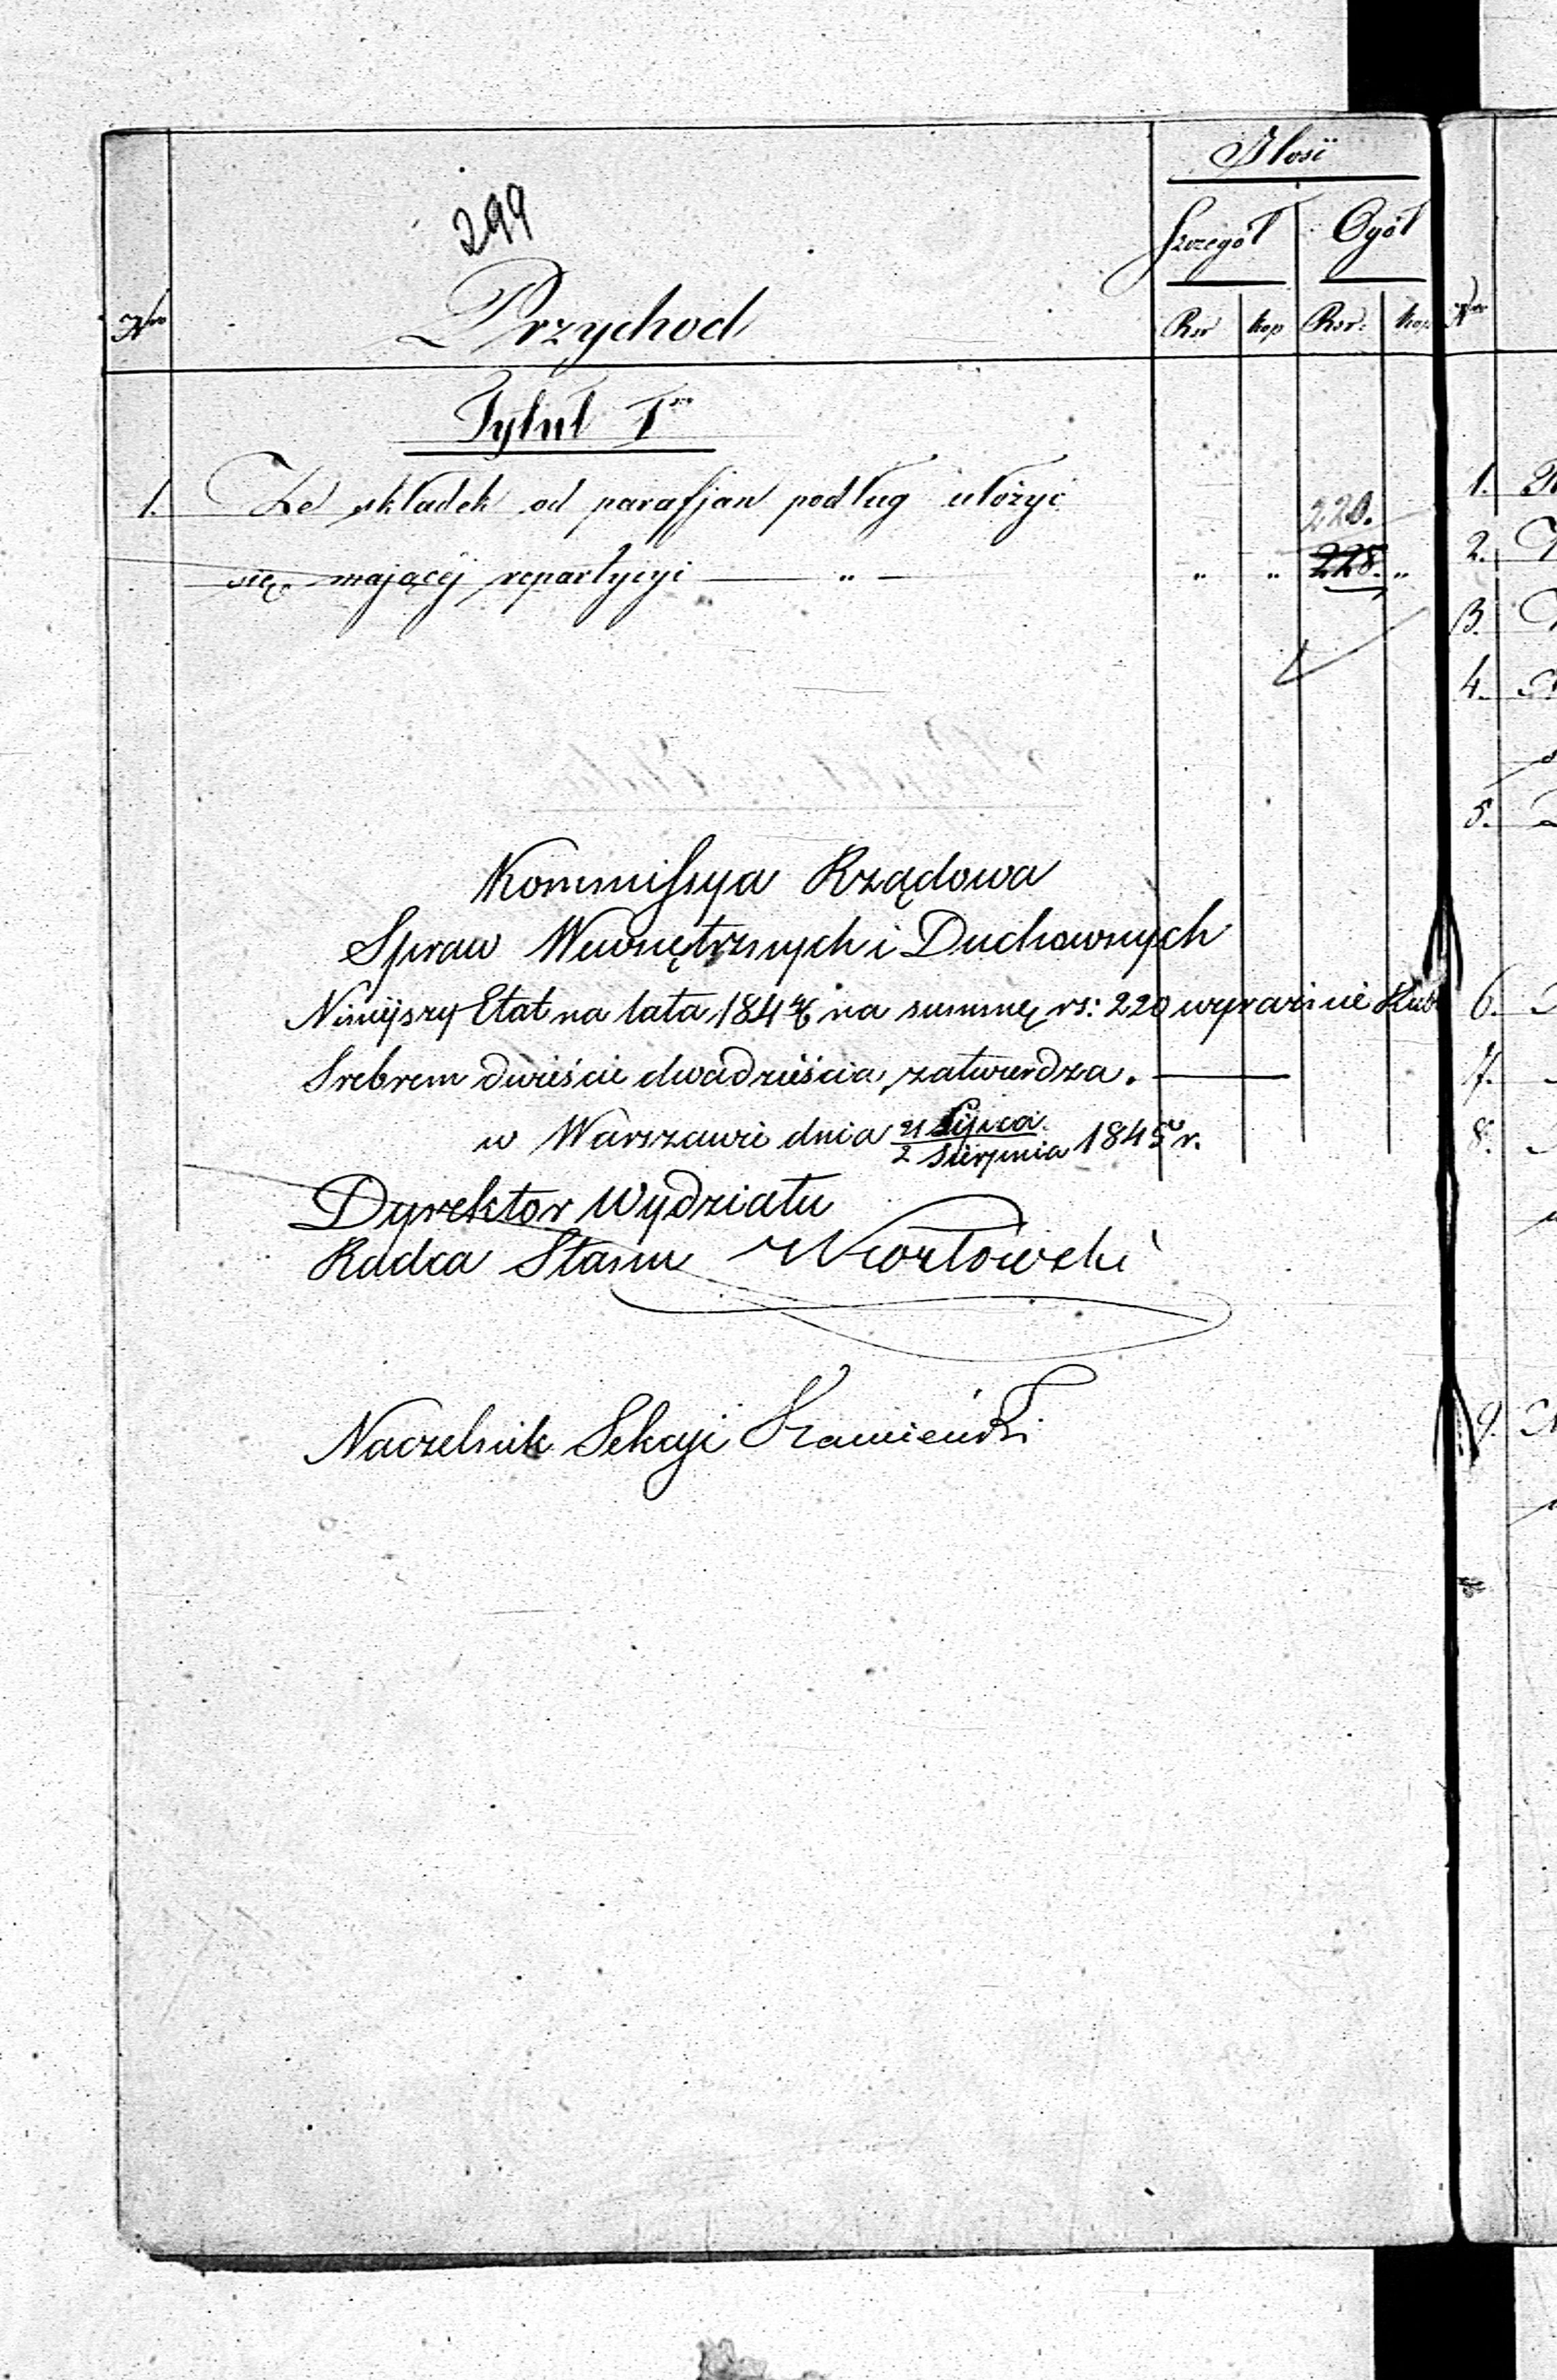 299
Ilość
Szczegół Ogół
Nro Przychod Rsr kop Rsr: kop Nro
Tytuł I
1. Ze składek od parafjan podług ułożyć 220.
się mającéj repartycyi — „ — „ „ 228. „
Kommissya Rządowa
Spraw Wewnętrznych i Duchownych
Niniejszy Etat na lata 184 na summę rs: 220 wyraźnie Rub
Srebrem dwieście dwadzieścia, zatwierdza. —
w Warszawie dnia 21 Lipca / 2 Sierpnia 1845 r.
Dyrektor Wydziału
Radca Stanu
Naczelnik Sekcyi
1.
2.
3.
4.
5.
6.
7.
8.
9.